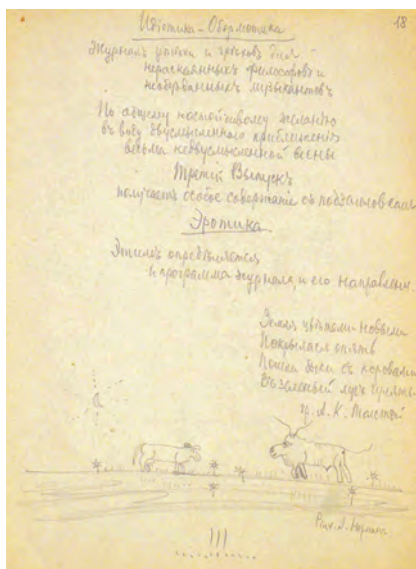 18
Идiотика-Обормотика
Журналъ утѣхи и грѣховъ для
нераскаянныхъ философовъ и
необузданныхъ музыкантовъ
По общему настойчивому желанiю
въ виду двусмысленнаго приближенiя
весьма недвусмысленной весны
Третiй Выпускъ
получаетъ особое содержанiе съ подзаголовкомъ
Эротика
Этимъ опредѣляется
и программа журнала, и его направленiе.
Земля цвѣтами новыми
Покрылася опять
Пошли быки съ коровами
Въ зеленый лугъ гулять.
гр. А. К. Толстой
Рис.
III